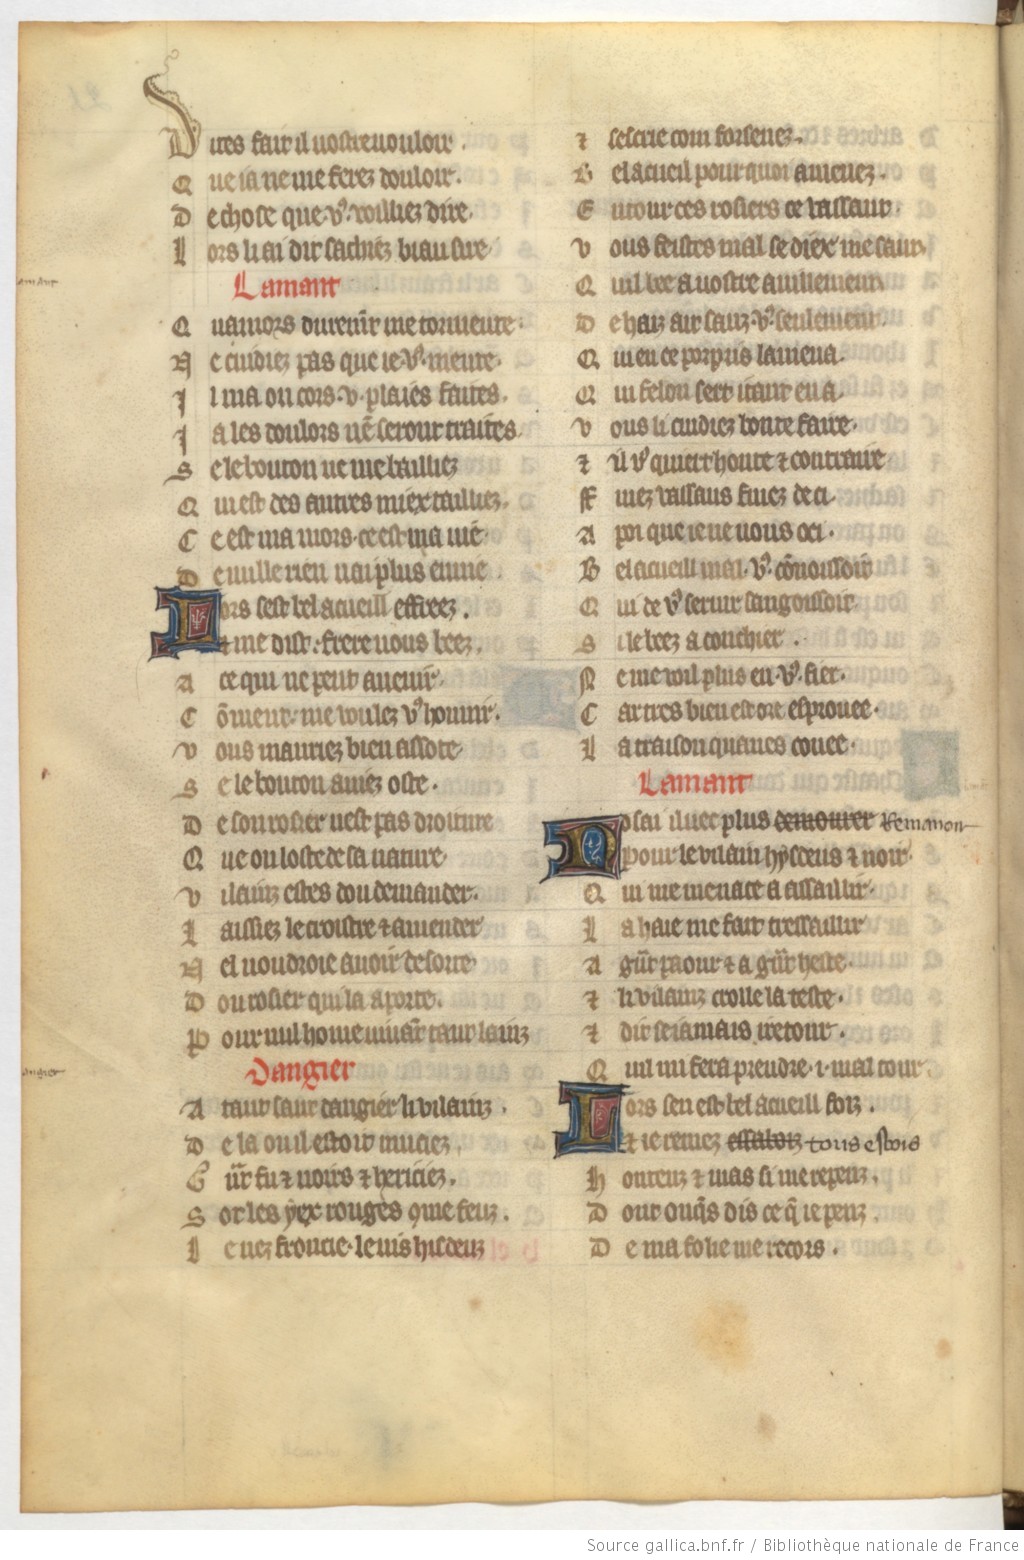 Dites fait il vostre vouloir.
Que ia ne me ferez douloir.
De chose que v9. voilliez dire.
Lors li ai dit sachiez biau sire
Lamant
amant
Quamors durem̄t me tormente.
Ne cuidiez pas que ie v9. mente.
Il ma ou cors .v. plaies faites.
Ja les doulors nē seront traites.
Se le bouton ne me bailliez
Qui est des autres miex tailliez.
Ce est ma mors. ce est ma vie.
De nulle rien nai plus enuie
Lors sest bel acueill effreez.
Et me dist. frere vous beez.
A ce qui ne peut auenir.
Cōment. me voulez v9 honnir.
Vous mauriez bien assote
Se le bouton auiez oste.
De son rosier nest pas droiture
Que on loste de sa nature.
Vilainz estes dou demander.
Laissiez le croistre et amender
Nel voudroie auoir desorte
Dou rosier qui la aporte.
Pour nul home viuāt tant laing
Dangier
dangier
Atant saut dangier li vilainz.
De la ou il estoit muciez.
Gr̄t fu et noirs et hericiez.
Sot les yex rouges que feuz.
Le nez froncie. le vis hisdeuz
et sescrie com forsenez.
Bel acueil pour quoi amenez.
Entour ces rosiers ce vassaut.
Vous feistes mal se diex me saut.
Quil bee a vostre auillement.
De haiz ait sanz v9. seulement.
Qui en ce porpris lamena.
Qui felon sert itant en a.
Vous li cuidiez bonte faire.
et il v9 quiert honte et contraire
Fuiez vassaus fuiez de ci.
A poi que ie ne vous oci.
Bel acueill mal. v9. cōnoissoit
Qui de v9 seruir sangoissoit.
Si le beez a conchier.
Ne me voil plus en. v9. fier.
Cartres bien est ore esprouee.
La traison quaues couee.
Lamant
Nosai iluec plus demourer Remanoir
Pour le vilain hysdeus et noir.
Qui me menace a assaillir.
La haie me fait tressaillir
A gr̄t paour et a gr̄t heste.
et li vilainz crolle la teste.
et dit se iamais i retour.
Quil mi fera prendre .i. mal tour
Lors sen est bel acueill foiz.
Et ie remez tous esbois
Honteuz et mas si me repenz.
Dont onq̄s dis ce q̄ ie penz.
De ma folie me recors.
Source gallica.bnf.fr / Bibliothèque nationale de France